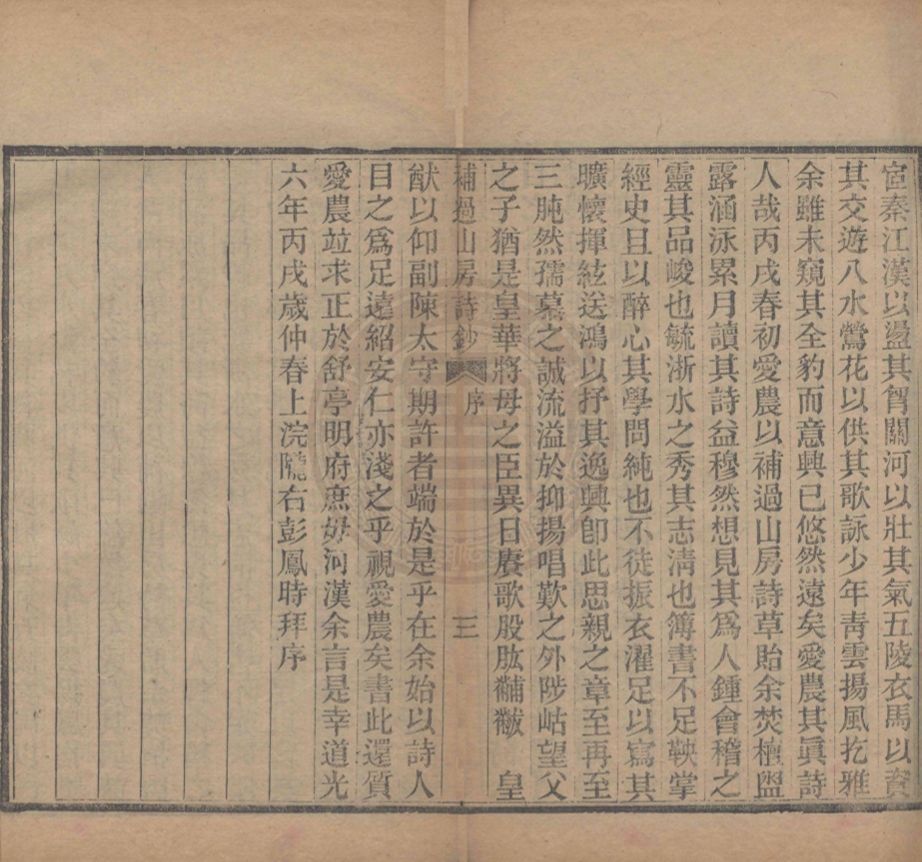 宣秦江漢以盪其胷關河以壯其氣五陵衣馬以資
其交遊八水鶯花以供其歌詠少年靑雲揚風扢雅
余雖未窺其全豹而意興已悠然遠矣愛農其眞詩
人哉丙戌春初愛農以補過山房詩草貽余焚檀盥
露涵泳累月讀其詩益穆然想見其爲人鍾會稽之
靈其品峻也毓浙水之秀其志淸也簿書不足鞅掌
經史且以醉心其學問純也不徒振衣濯足以寫其
曠懷揮絃送鴻以抒其逸興卽此思親之章至再至
三肫然孺慕之誠流溢於抑揚唱歎之外陟岵望父
之子猶是皇華將母之臣異日賡歌股肱黼黻　皇
補過山房詩鈔　序　三
猷以仰副陳太守期許者端於是乎在余始以詩人
目之爲足遠紹安仁亦淺之乎視愛農矣書此還質
愛農竝求正於舒亭明府庶毋河漢余言是幸道光
六年丙戌歲仲春上浣隴右彭鳳時拜序